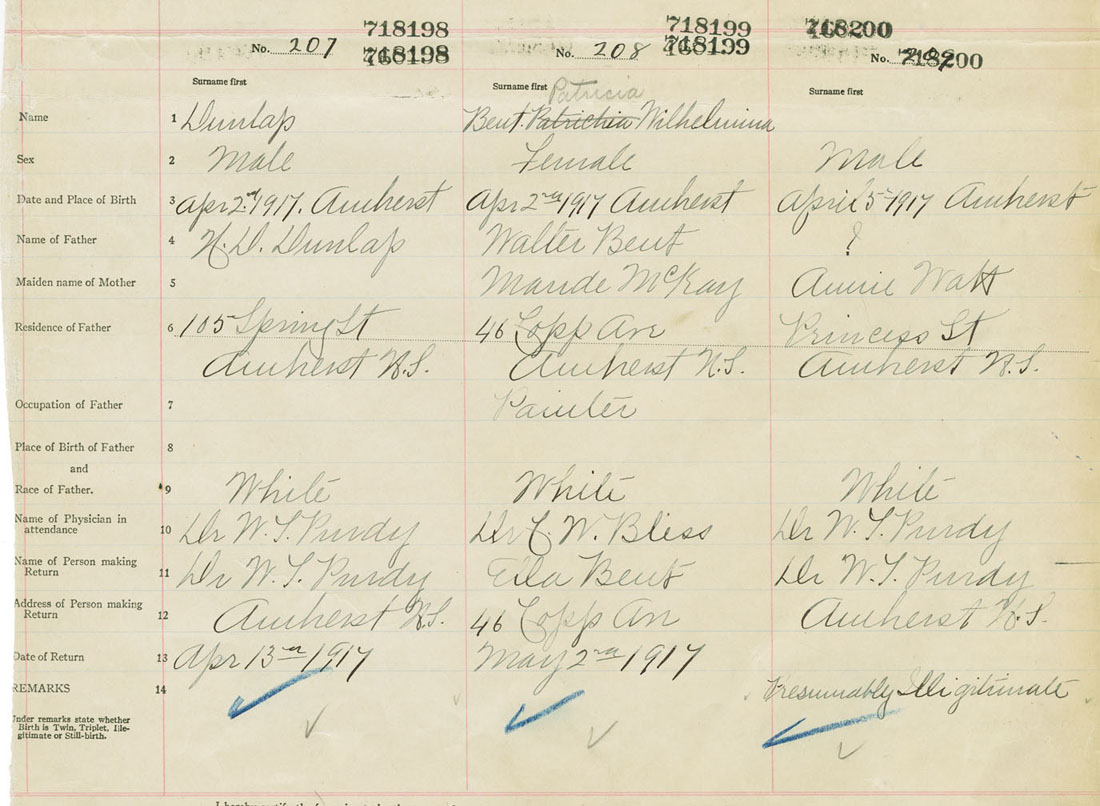 718198 718199 718200
No. 207 718198 No. 208 718199 No. 718200
Surname first Surname first Patricia Surname first
Name 1 Dunlap Bent. Patrichia Wilhelmina
Sex 2 Male Female Male
Date and Place of Birth 3 Apr 2nd 1917. Amherst Apr 2nd 1917 Amherst April 5 1917 Amherst
Name of Father 4 H. D. Dunlap Walter Bent ?
Maiden name of Mother 5 Maude McKay Annie Watt
Residence of Father 6 105 Spring St 46 Copp Ave Princess St
Amherst N.S. Amherst N.S. Amherst N.S.
Occupation of Father 7 Painter
Place of Birth of Father 8
and
Race of Father. 9 White White White
Name of Physician in
attendance 10 Dr W. T. Purdy Dr C. W. Bliss Dr W. T. Purdy
Name of Person making
Return 11 Dr W. T. Purdy Ella Bent Dr W. T. Purdy
Address of Person making
Return 12 Amherst N.S. 46 Copp Av Amherst N.S.
Date of Return 13 Apr 13th 1917 May 2nd 1917
REMARKS 14 Presumably Illigitimate
Under remarks state whether
Birth is Twin, Triplet, Ille-
gitimate or Still-birth.